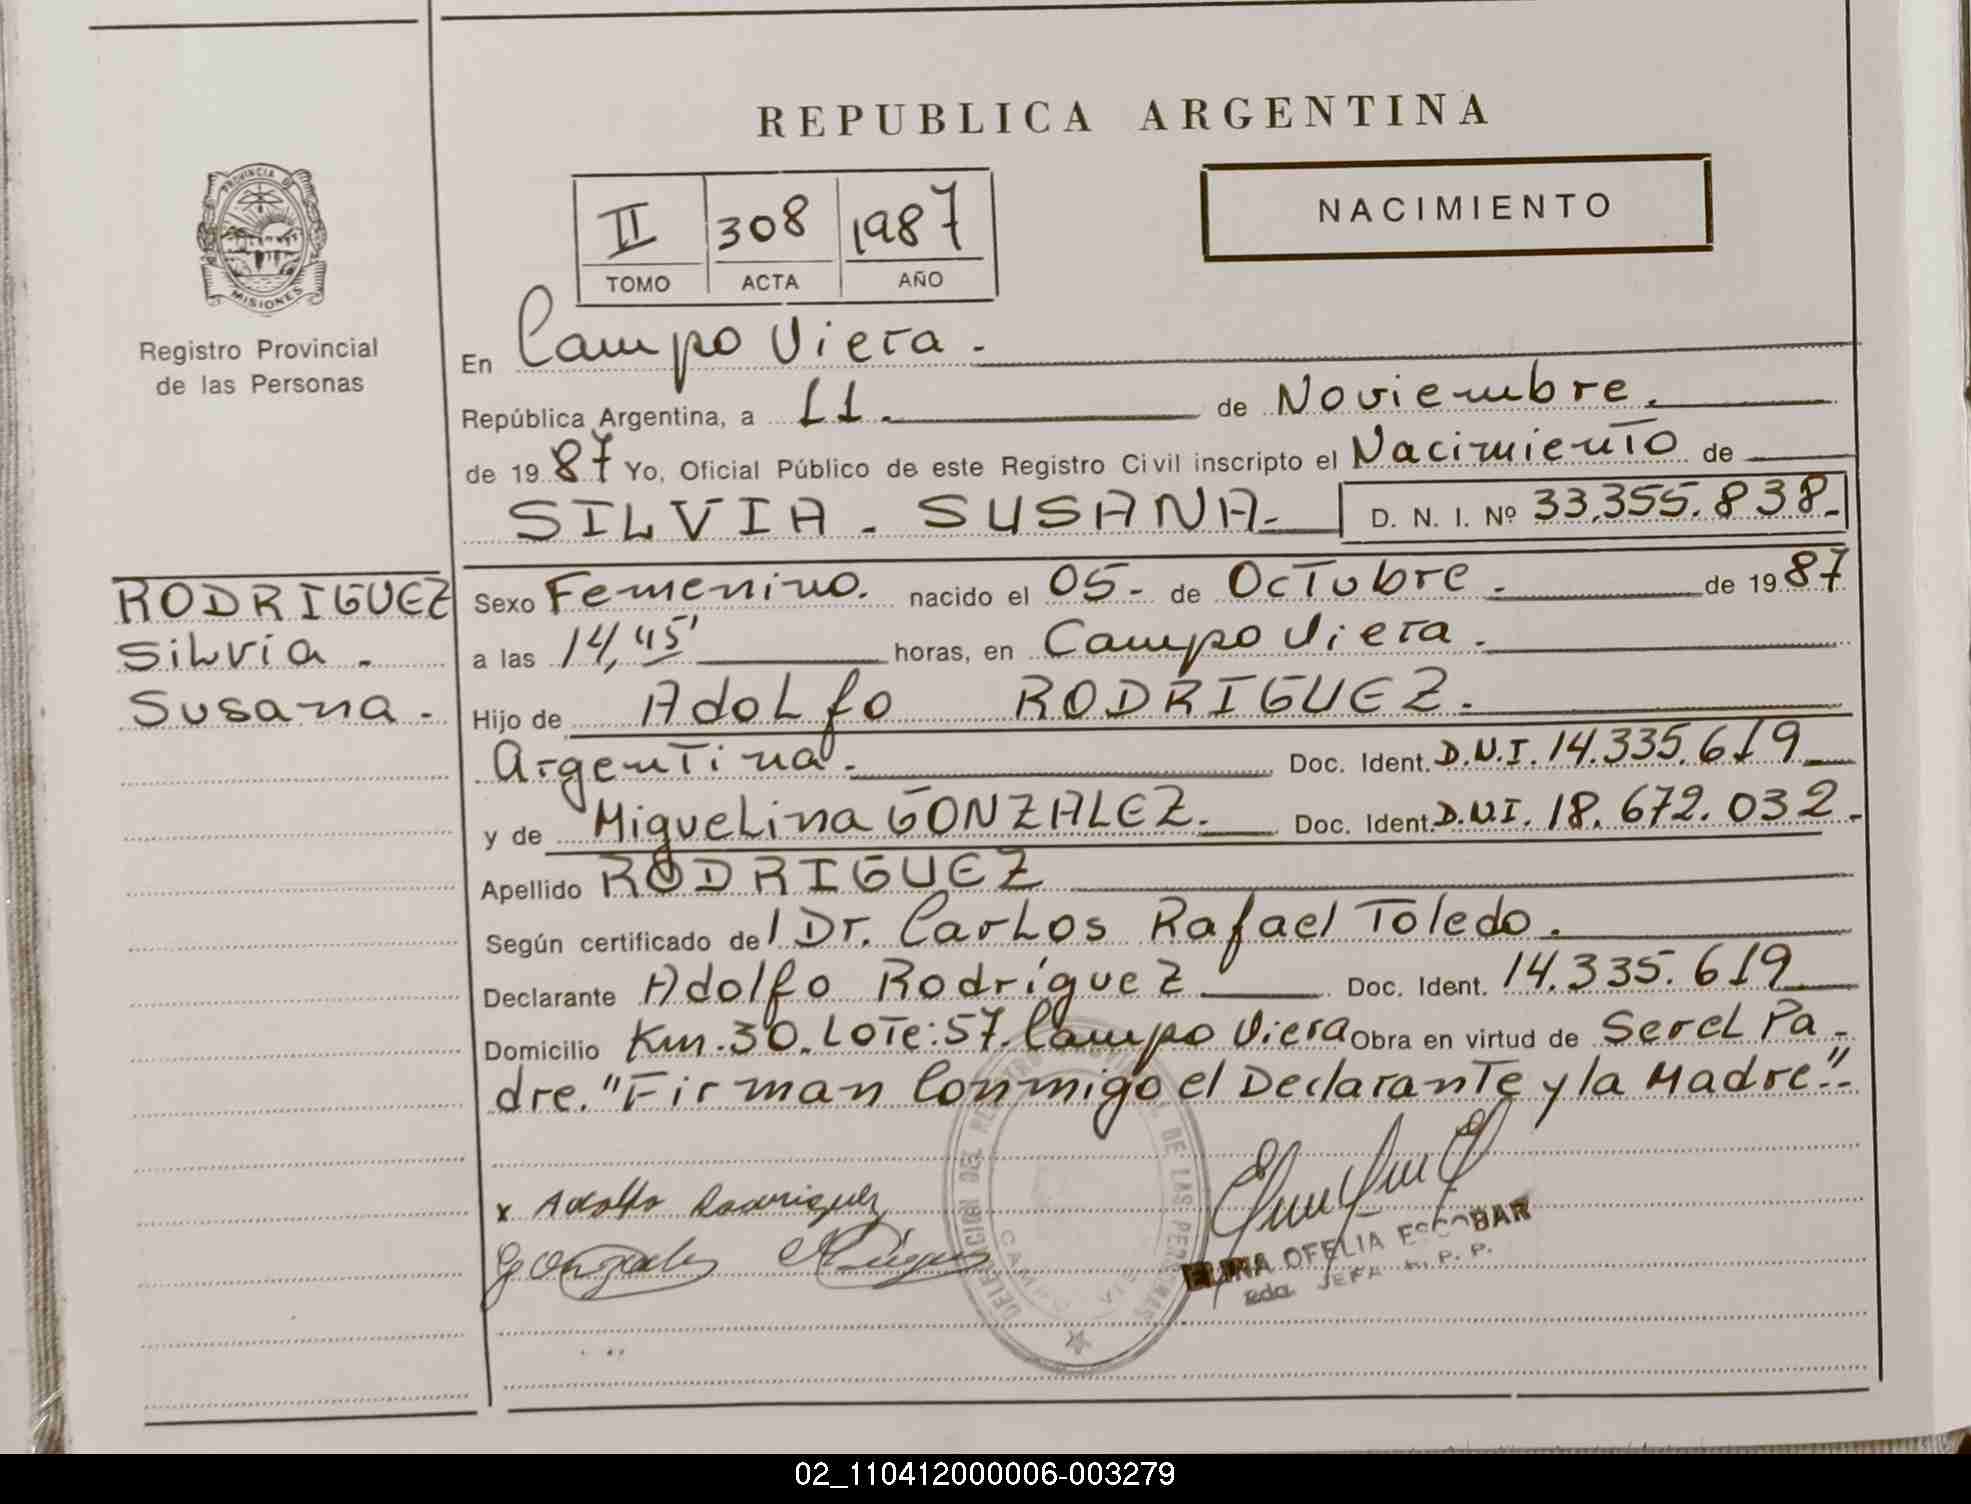 REPUBLICA ARGENTINA
PROVINCIA DE
MISIONES
Registro Provincial
de las Personas
II 308 1987
TOMO ACTA AÑO
NACIMIENTO
En Campo Viera.
República Argentina, a 11. de Noviembre.
de 19 87 Yo, Oficial Público de este Registro Civil inscripto el Nacimiento de
SILVIA - SUSANA- D. N. I. Nº 33.355.838-
RODRIGUEZ
Silvia.
Susana.
Sexo Femenino. nacido el 05- de Octubre. de 19 87
a las 14,45' horas, en Campo Viera.
Hijo de Adolfo RODRIGUEZ.
Argentina. Doc. Ident. D.N.I. 14.335.619
y de Miguelina GONZALEZ. Doc. Ident. D.N.I. 18.672.032-
Apellido RODRIGUEZ
Según certificado del Dr. Carlos Rafael Toledo.
Declarante Adolfo Rodríguez Doc. Ident. 14.335.619
Domicilio Km.30.Lote:57.Campo Viera Obra en virtud de Serel Pa-
dre."Firman Conmigo el Declarante y la Madre".-
x Adolfo Rodriguez
Gonzalez
DE LAS PERSONAS
ELINA OFELIA ESCOBAR
JEFA R. P. P.
02_110412000006-003279